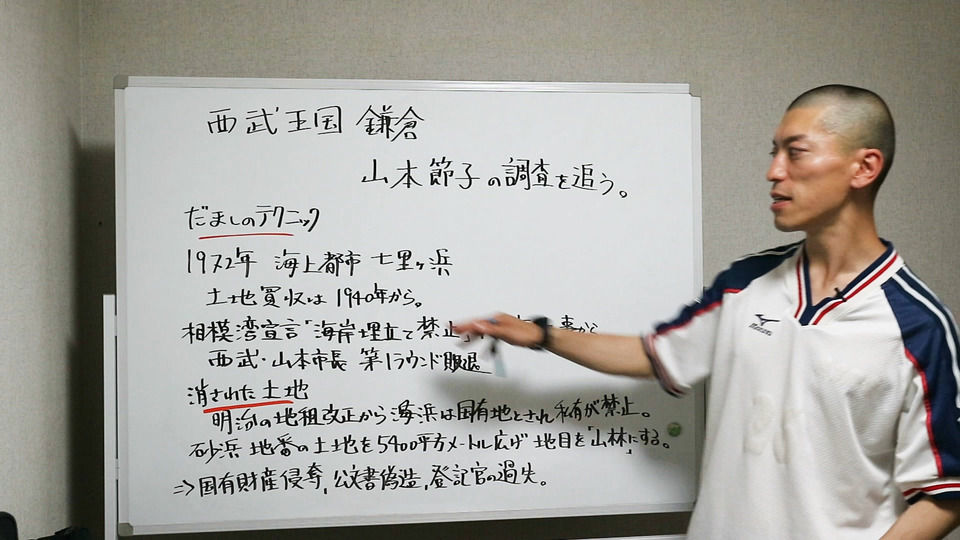 西武王国 鎌倉
山本節子の調査を追う。
だましのテクニック
1972年 海上都市 七里ヶ浜
土地買収は1940年から。
相模湾宣言「海岸埋立て禁止」 から
西武・山本市長 第1ラウンド敗退
消された土地
明治の地租改正から海浜は国有地とされ私有が禁止。
砂浜 地番の土地を5900平方メートル広げ 地目を「山林」にする。
⇒国有財産侵奪,公文書偽造,登記官の過失。
MIZUNO